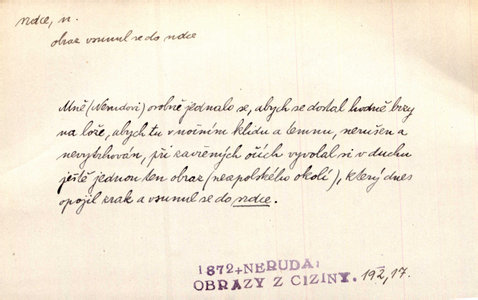 srdce, n.
obraz vsunul se do srdce
Mně (Nerudovi) osobně jednalo se, abych se dostal hodně brzy
na lože, abych tu v nočním klidu a temnu, nerušen a
nevytrhován, při zavřených očích vyvolal si v duchu
ještě jednou ten obraz (neapolského okolí), který dnes
opojil zrak a vsunul se do srdce.
1872 + NERUDA:
OBRAZY Z CIZINY. 192, 17.